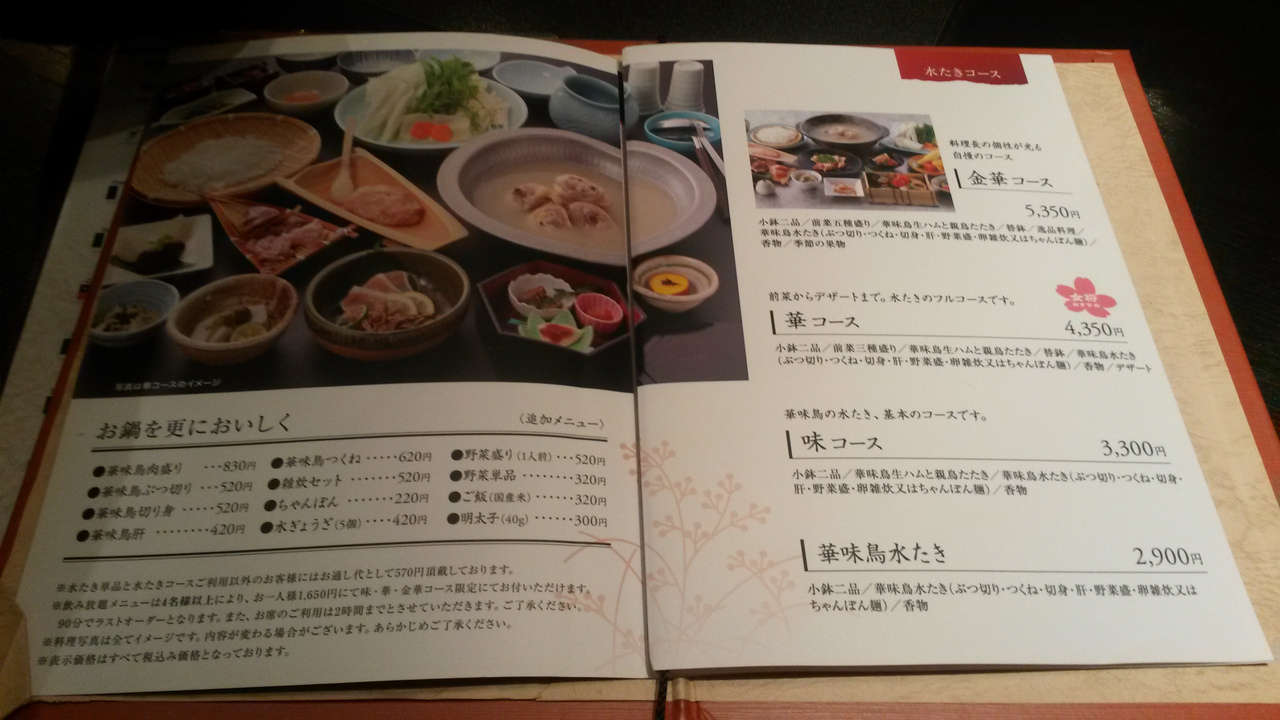 写真は華コースのイメージ
お鍋を更においしく
〈追加メニュー〉
●華味鳥肉盛り ・・・830円
●華味鳥ぶつ切り ・・520円
●華味鳥切り身 ・・・・・520円
●華味鳥肝 ・・・・・・・・420円
●華味鳥つくね ・・・・・620円
●雑炊セット ・・・・・・・520円
●ちゃんぽん ・・・・・・・220円
●水ぎょうざ(5個) ・・・・420円
●野菜盛り(1人前) ・・・520円
●野菜単品 ・・・・・・・・320円
●ご飯(国産米) ・・・・・・320円
●明太子(40g) ・・・・・・300円
※水たき単品と水たきコースご利用以外のお客様にはお通し代として570円頂戴しております。
※飲み放題メニューは4名様以上により、お一人様1,650円にて味・華・金華コース限定にてお付けいただけます。
90分でラストオーダーとなります。また、お席のご利用は2時間までとさせていただきます。ご了承ください。
※料理写真は全てイメージです。内容が変わる場合がございます。あらかじめご了承ください。
※表示価格はすべて税込み価格となっております。
水たきコース
料理長の個性が光る
自慢のコース
金華コース
5,350円
小鉢二品／前菜五種盛り／華味鳥生ハムと親鳥たたき／替鉢／逸品料理／
華味鳥水たき(ぶつ切り・つくね・切身・肝・野菜盛・卵雑炊又はちゃんぽん麺)／
香物／季節の果物
前菜からデザートまで。水たきのフルコースです。
女将
おすすめ
華コース
4,350円
小鉢二品／前菜三種盛り／華味鳥生ハムと親鳥たたき／替鉢／華味鳥水たき
(ぶつ切り・つくね・切身・肝・野菜盛・卵雑炊又はちゃんぽん麺)／香物／デザート
華味鳥の水たき、基本のコースです。
味コース
3,300円
小鉢二品／華味鳥生ハムと親鳥たたき／華味鳥水たき(ぶつ切り・つくね・切身・
肝・野菜盛・卵雑炊又はちゃんぽん麺)／香物
華味鳥水たき
2,900円
小鉢二品／華味鳥水たき(ぶつ切り・つくね・切身・肝・野菜盛・卵雑炊又は
ちゃんぽん麺)／香物